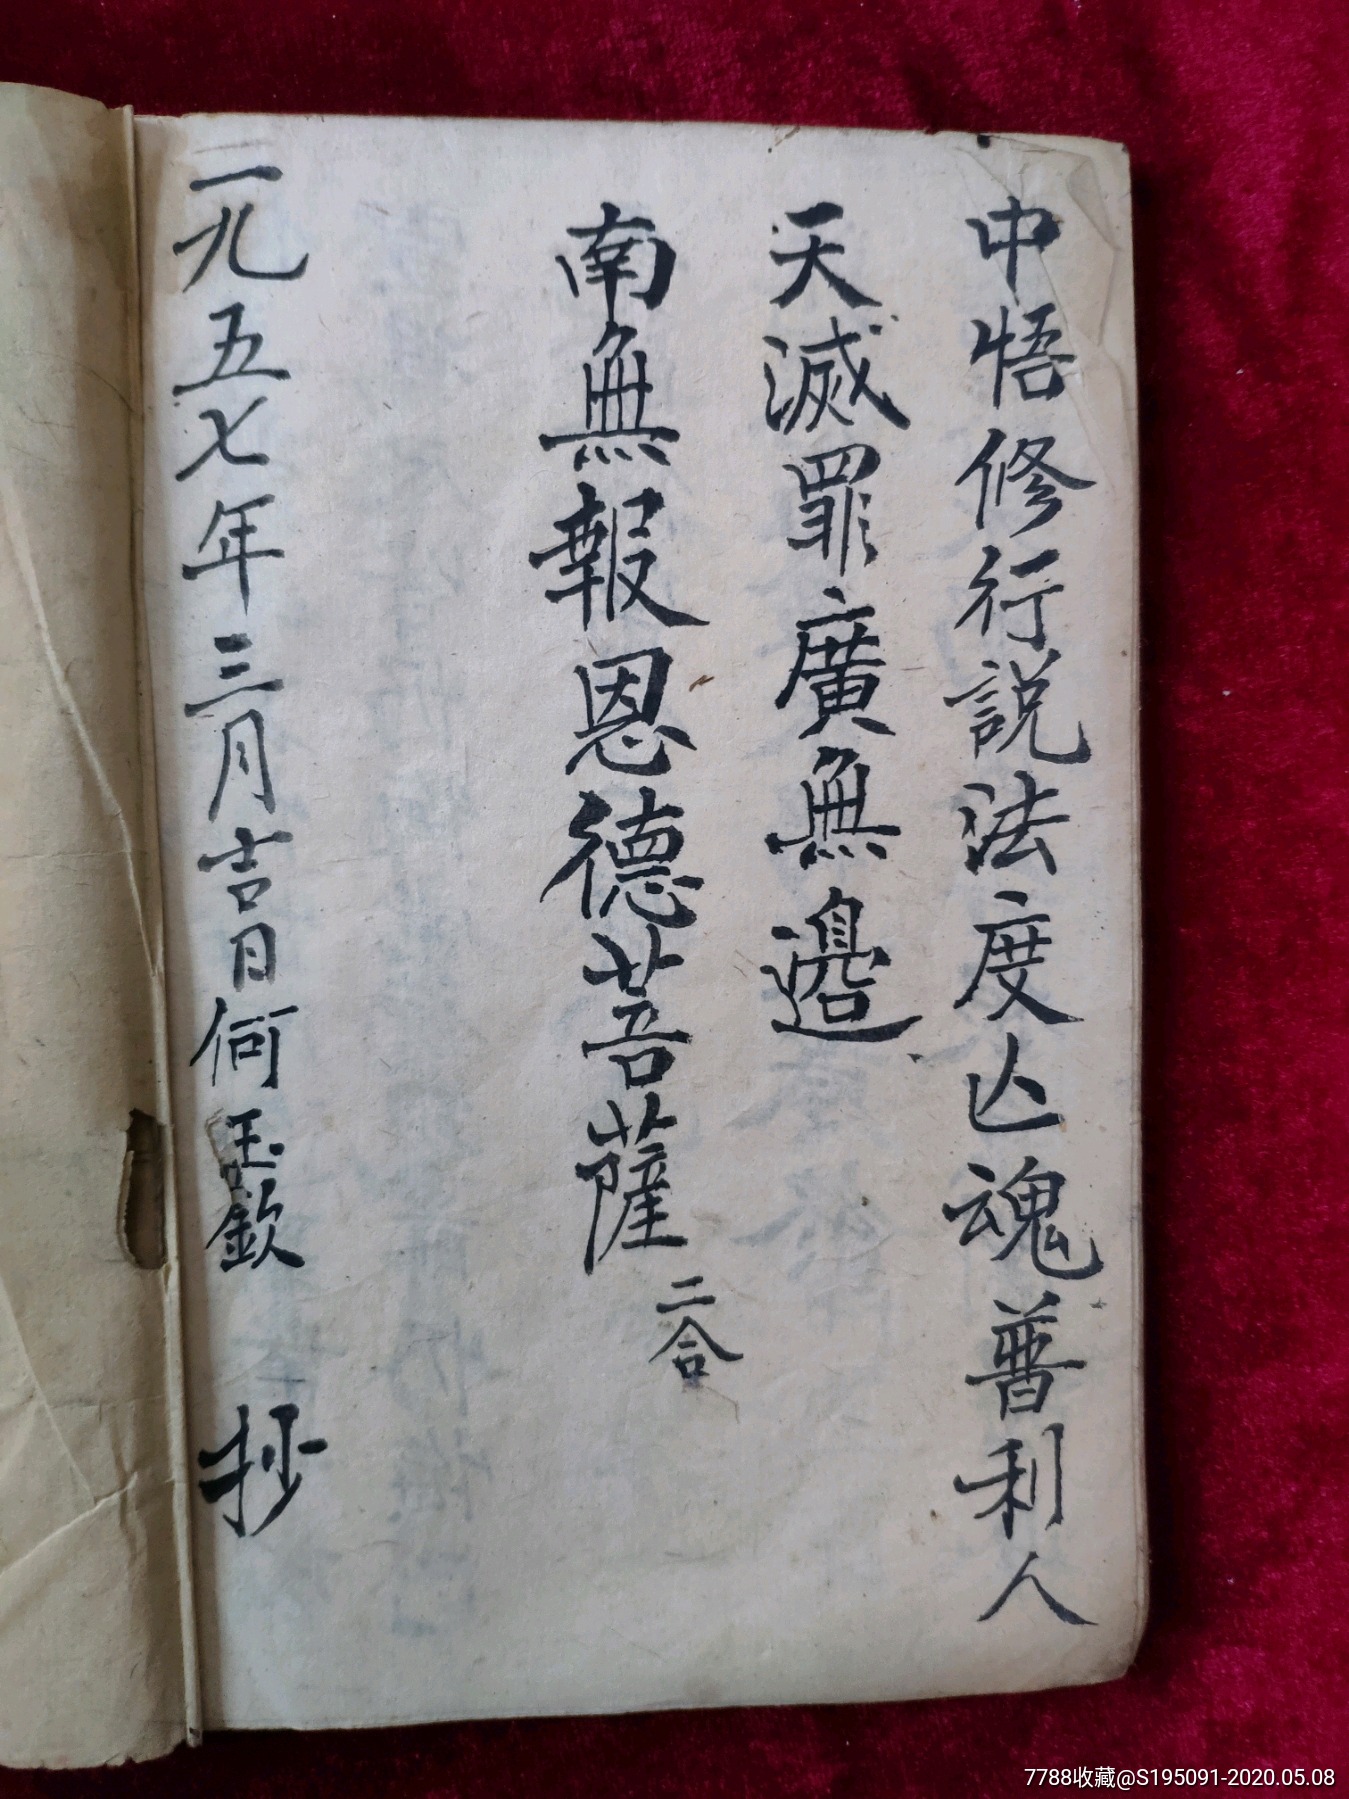 中悟修行說法度亾魂普利人
天滅罪廣無邊
南無報恩德菩薩 二合
一九五七年三月吉日何玉欽 抄
7788收藏@S195091-2020.05.08